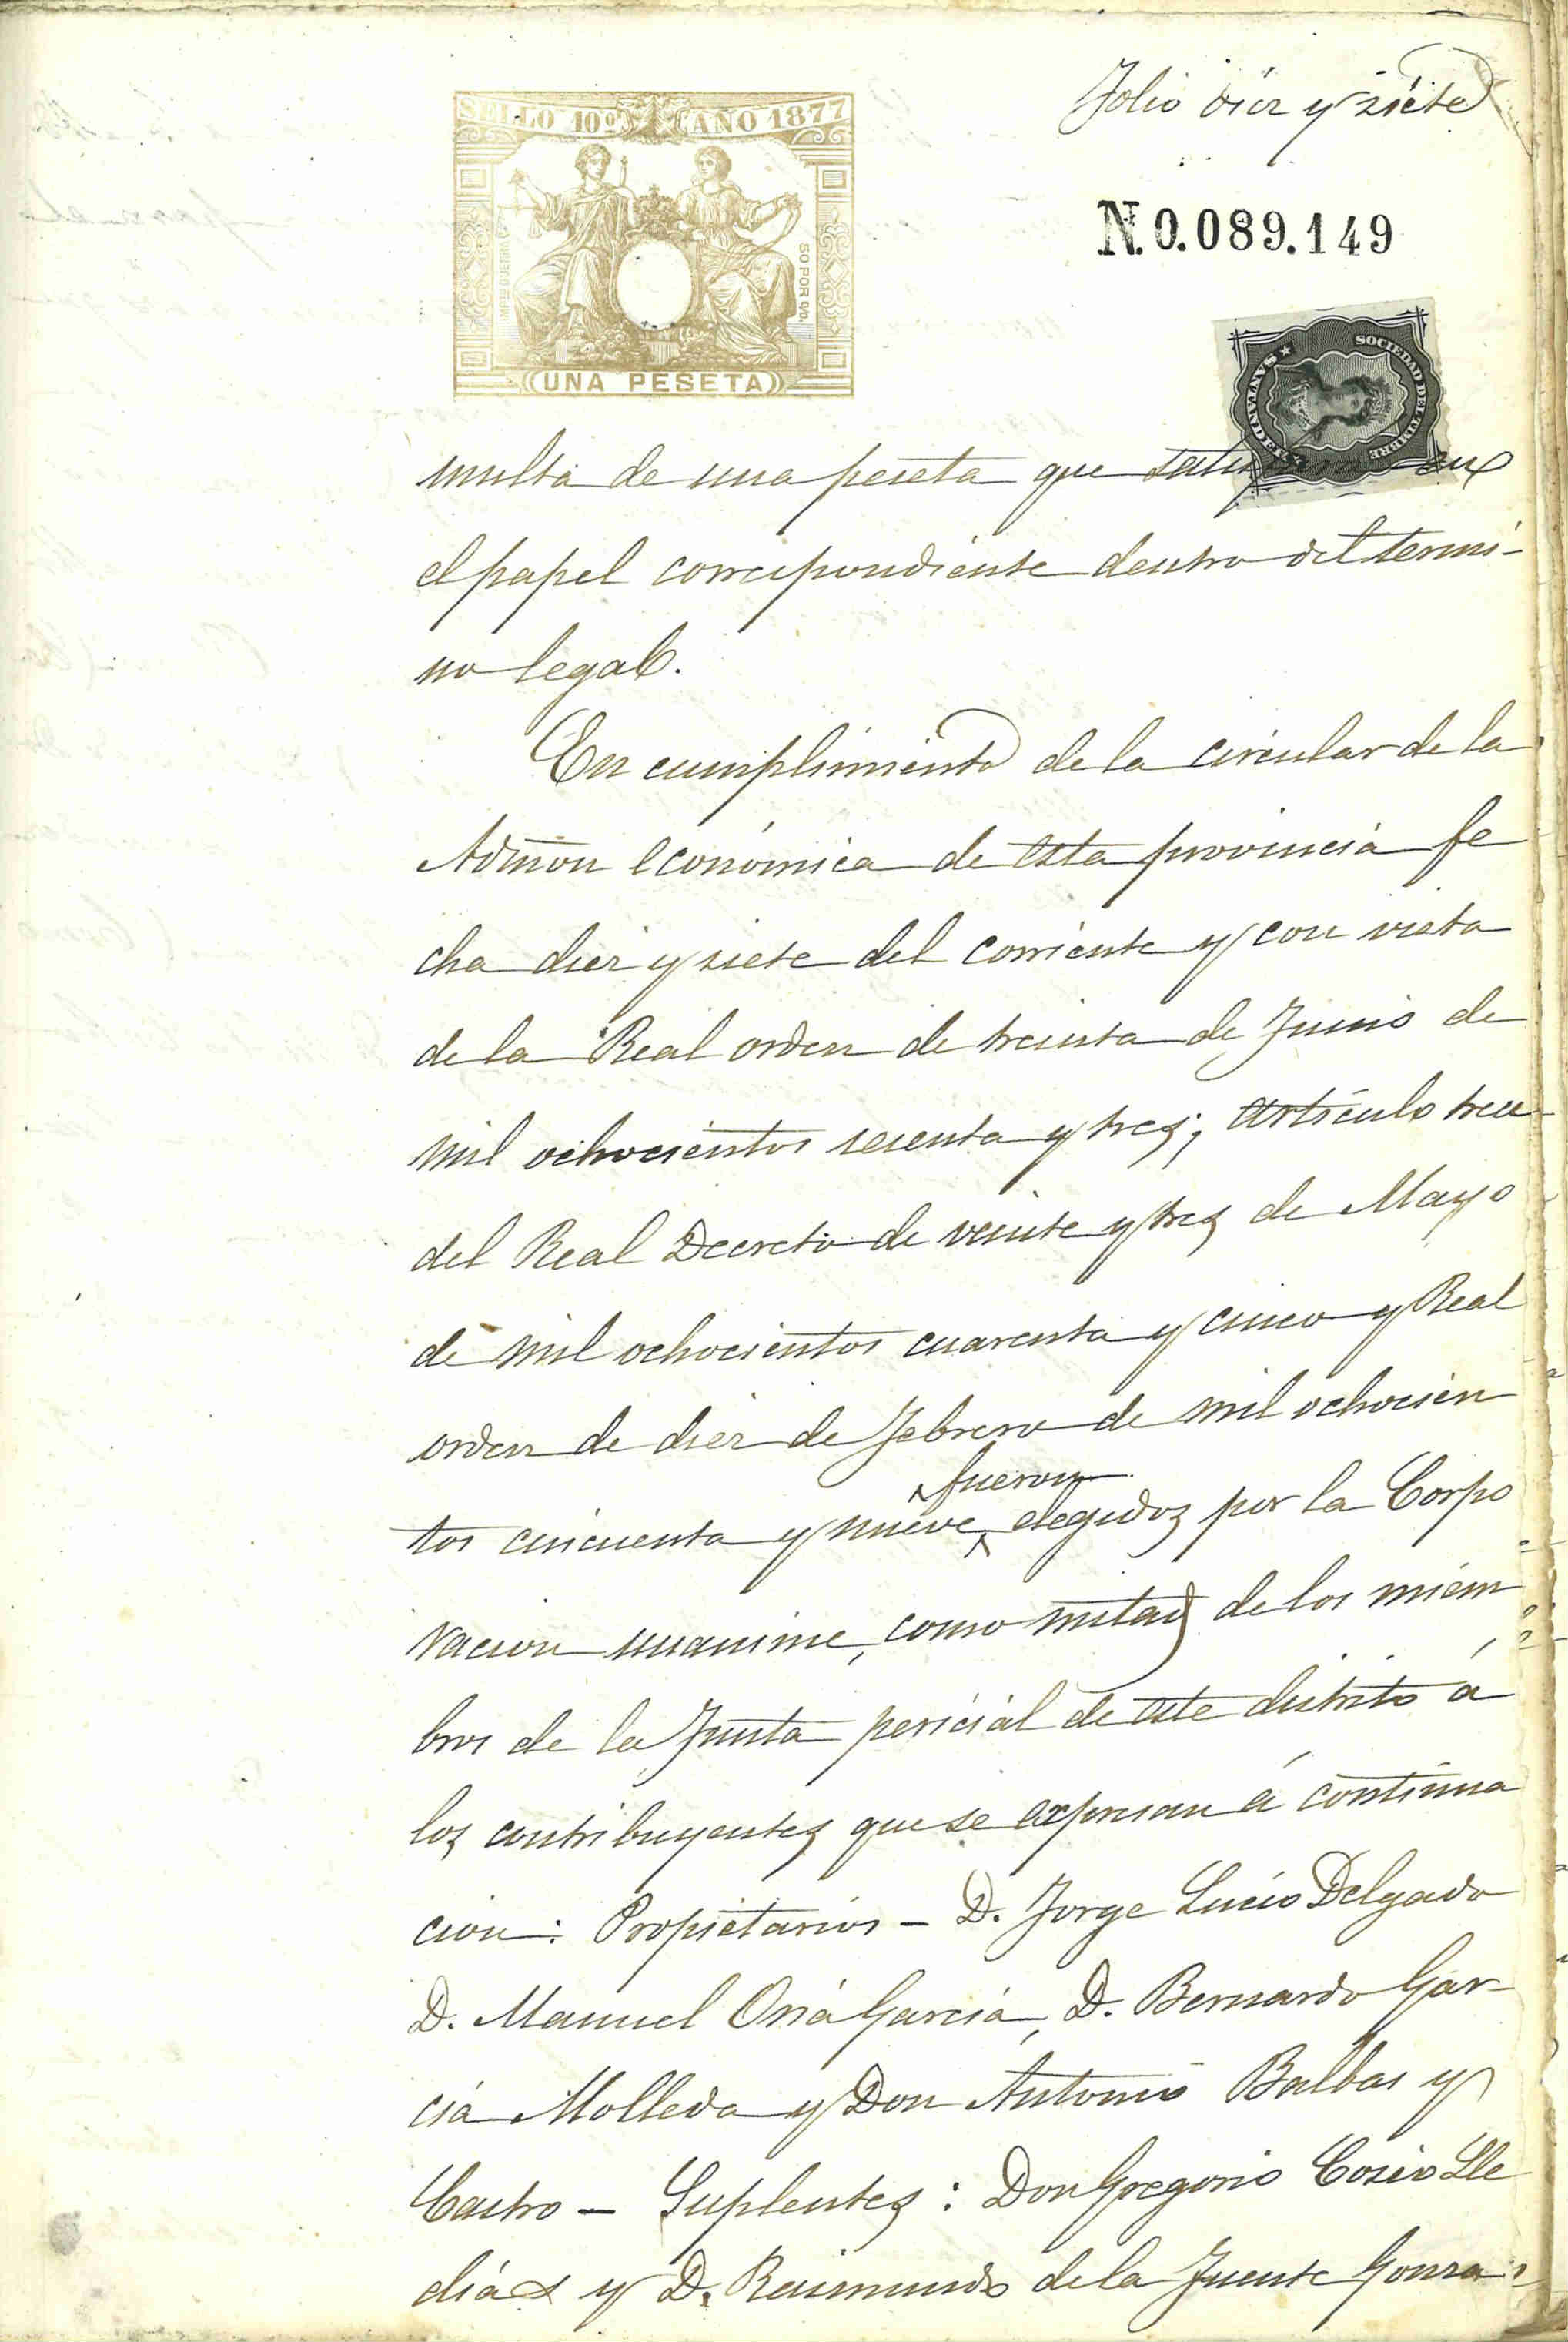 Folio diez y siete
SELLO 10º AÑO 1877
50 POR 0/0.
(UNA PESETA)
N.0.089.149
SOCIEDAD DEL TIMBRE
multa de una peseta que en
el papel correspondiente dentro del termi-
no legal.
En cumplimiento de la circular de la
Admon económica de esta provincia fe
cha diez y siete del corriente y con vista
de la Real orden de treinta de Junio de
mil ochocientos sesenta y tres; artículo trece
del Real Decreto de veinte y tres de Mayo
de mil ochocientos cuarenta y cinco y Real
orden de diez de Febrero de mil ochocien
fueron
tos cincuenta y nueve, elegidos por la Corpo
racion unanime, como mitad de los miem
bros de la Junta pericial de este distrito á
los contribuyentes que se expresan á continua
cion: Propietarios – D. Jorge Lucio Delgado
D. Manuel Oria Garcia, D. Bernardo Gar-
cia Molleda y Don Antonio Balbas y
Castro – Suplentes: Don Gregorio Cosio Lle
días y D. Raimundo de la Fuente Gonza